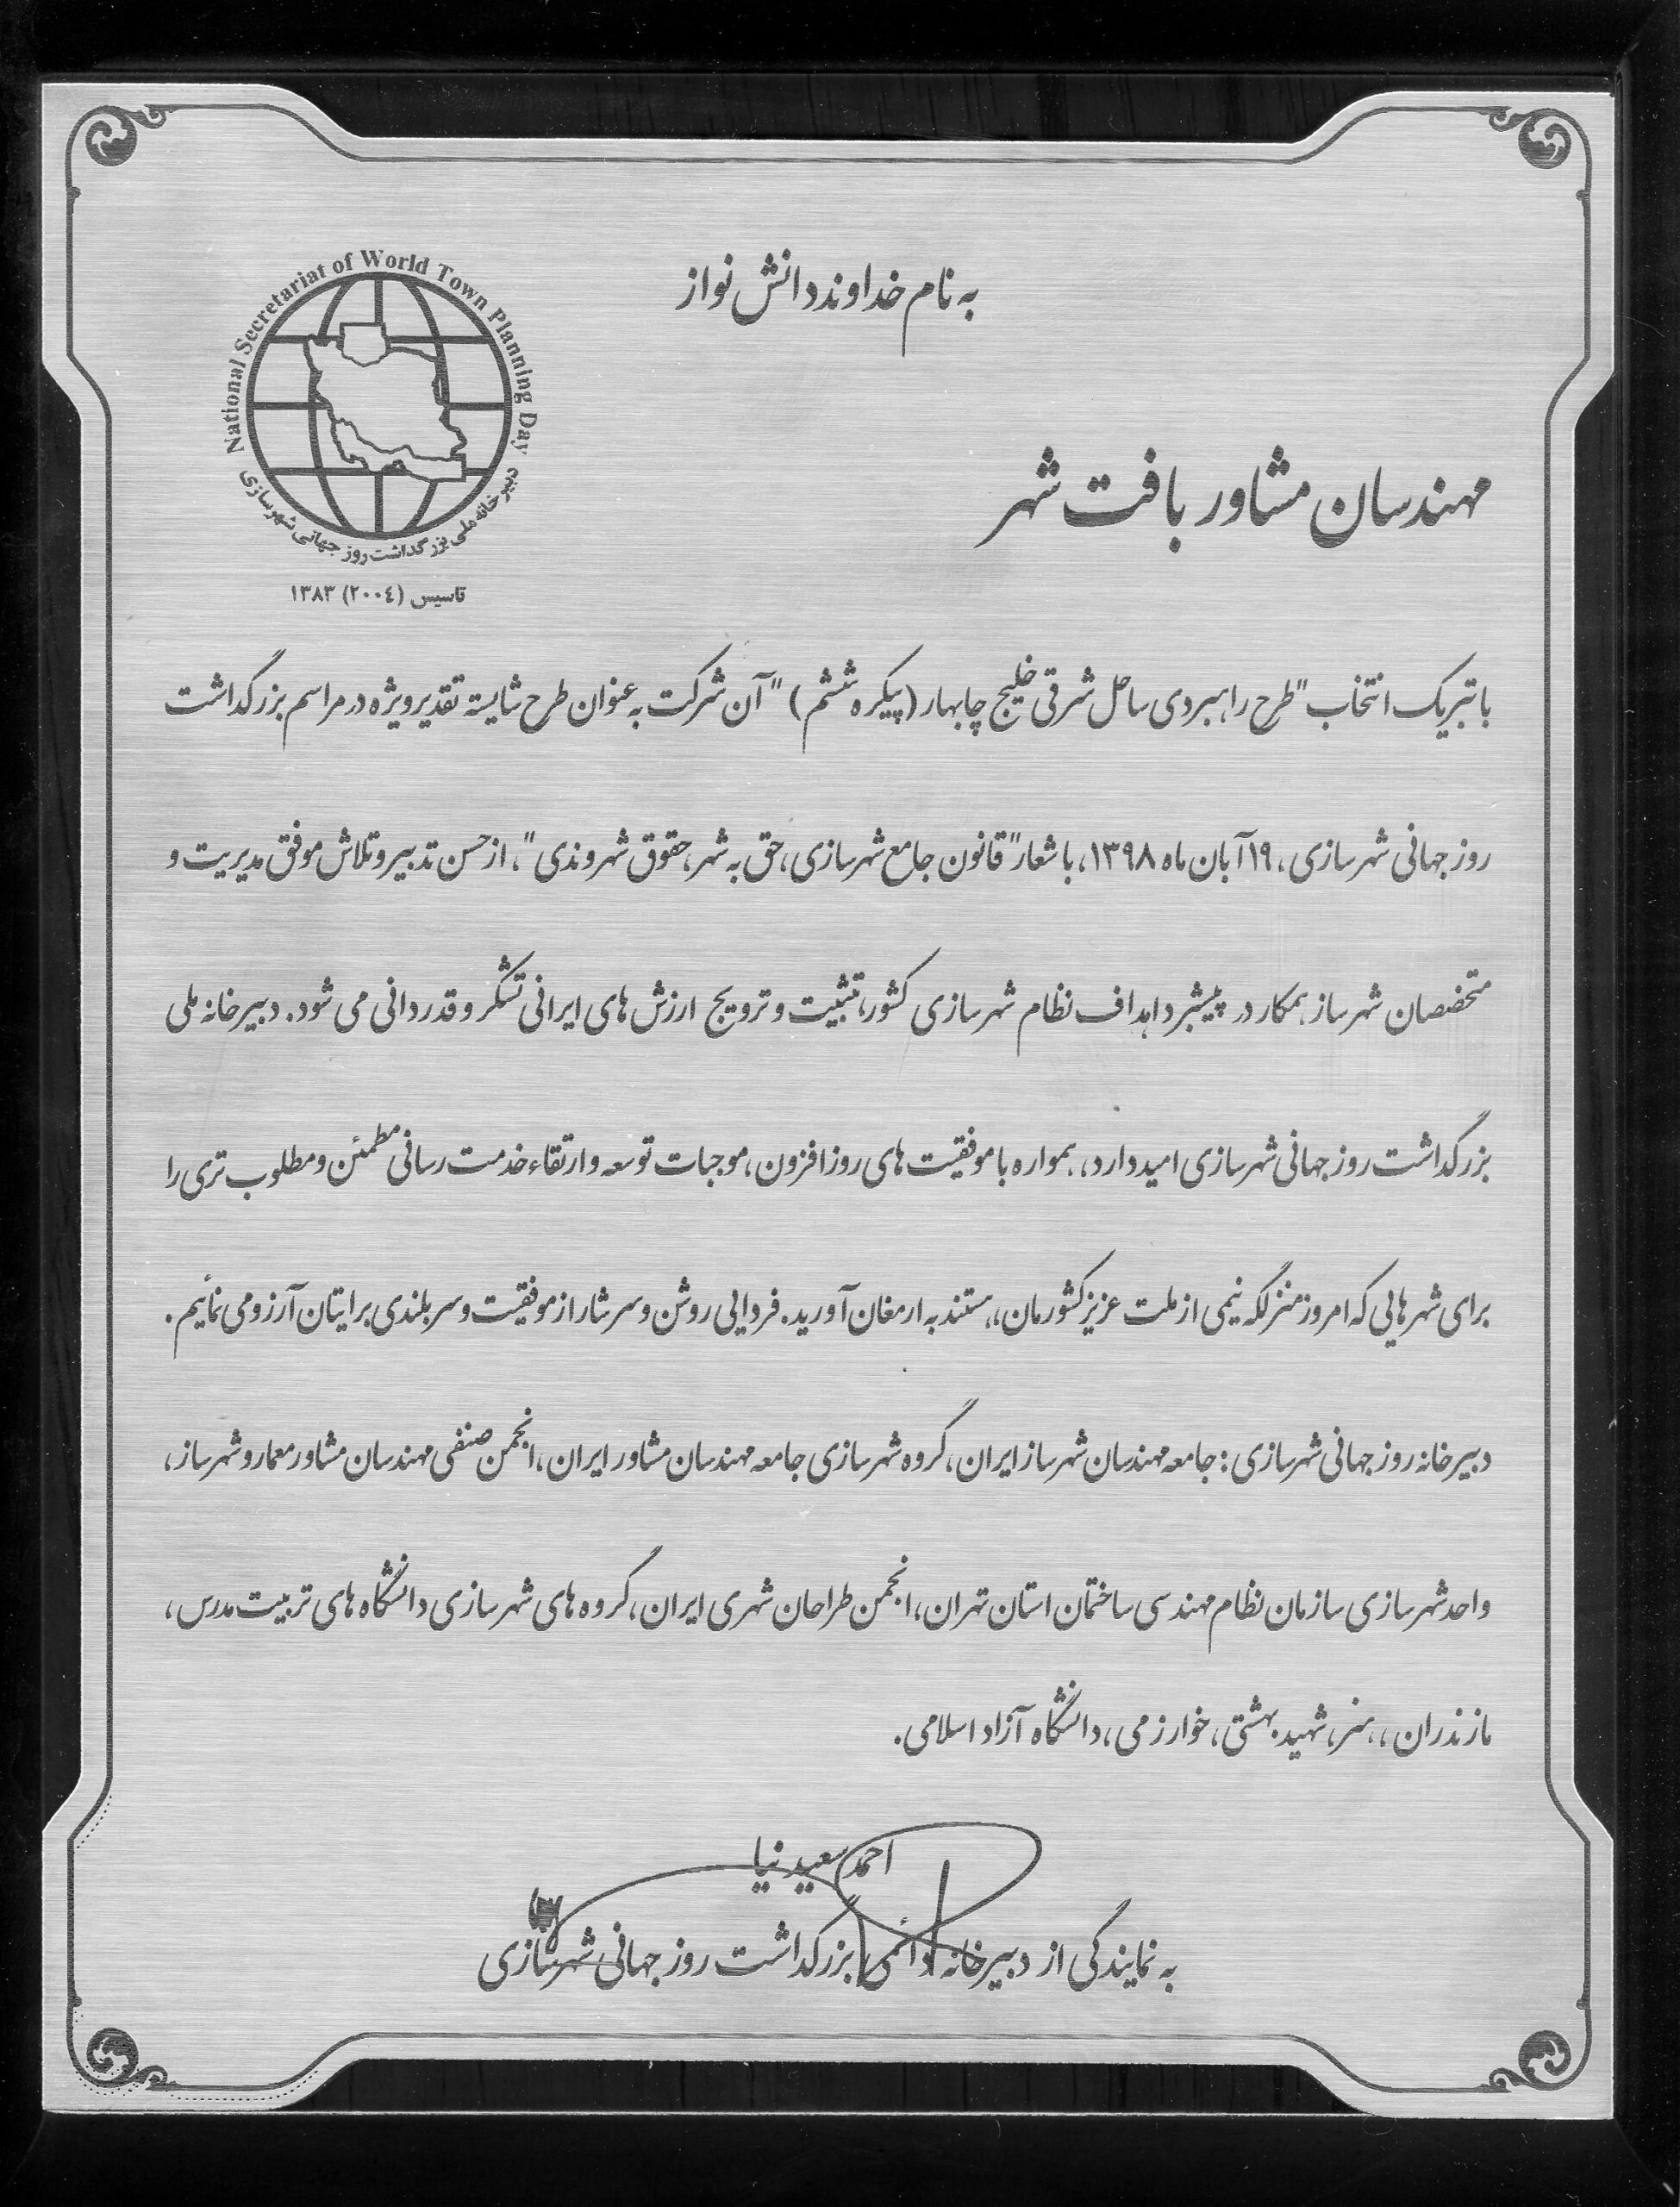 به نام خداوند دانش نواز
National Secretariat of World Town Planning Day
دبیرخانه ملی بزرگداشت روز جهانی شهرسازی
تاسیس (٢٠٠٤) ١٣٨٣
مهندسان مشاور بافت شهر
با تبریک انتخاب "طرح راهبردی ساحل شرقی خلیج چابهار (پیکره ششم) " آن شرکت به عنوان طرح شایسته تقدیر ویژه در مراسم بزرگداشت
روز جهانی شهرسازی، ۱۹ آبان ماه ۱۳۹۸، با شعار "قانون جامع شهرسازی، حق به شهر، حقوق شهروندی"، از حسن تدبیر و تلاش موفق مدیریت و
متخصصان شهرساز همکار در پیشبرد اهداف نظام شهرسازی کشور، تثبیت و ترویج ارزش های ایرانی تشکر و قدردانی می شود. دبیرخانه ملی
بزرگداشت روز جهانی شهرسازی امید دارد، همواره با موفقیت های روزافزون، موجبات توسعه و ارتقاء خدمت رسانی مطمئن و مطلوب تری را
برای شهرهایی که امروز منزلگه نیمی از ملت عزیز کشورمان، هستند به ارمغان آورید. فردایی روشن و سرشار از موفقیت و سربلندی برایتان آرزو می نمائیم.
دبیرخانه روز جهانی شهرسازی: جامعه مهندسان شهرساز ایران، گروه شهرسازی جامعه مهندسان مشاور ایران، انجمن صنفی مهندسان مشاور معمار و شهرساز،
واحد شهرسازی سازمان نظام مهندسی ساختمان استان تهران، انجمن طراحان شهری ایران، گروه های شهرسازی دانشگاه های تربیت مدرس،
مازندران، هنر، شهید بهشتی، خوارزمی، دانشگاه آزاد اسلامی.
احمد سعیدنیا
به نمایندگی از دبیرخانه دائمی بزرگداشت روز جهانی شهرسازی